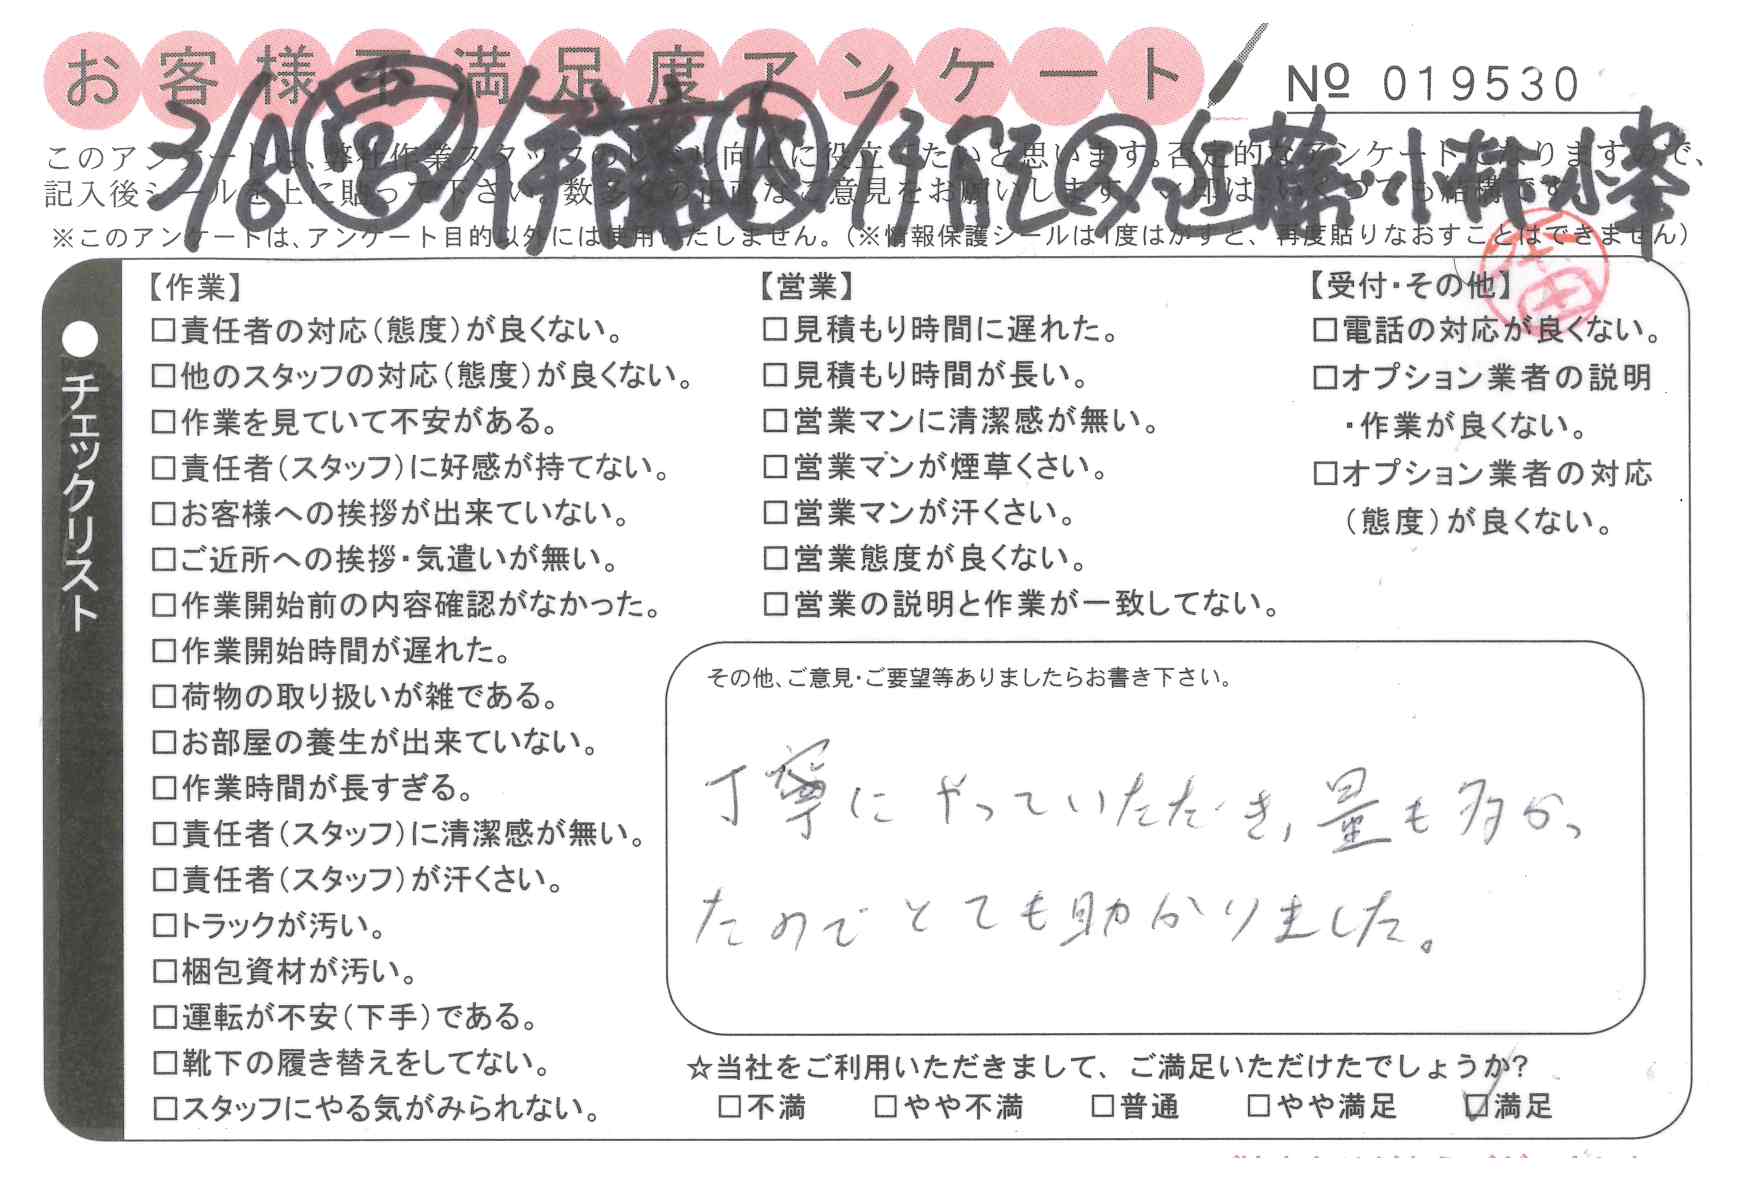 お客様不満足度アンケート
№ 019530
3/8
このアンケートは、弊社作業スタッフのレベル向上に役立てたいと思います。否定的なアンケートになりますので、
記入後シールを上に貼って下さい。数多くの正直なご意見をお願いします。レ印は、いくつでも結構です。
※このアンケートは、アンケート目的以外には使用いたしません。(※情報保護シールは1度はがすと、再度貼りなおすことはできません)
●チェックリスト
【作業】
□責任者の対応(態度)が良くない。
□他のスタッフの対応(態度)が良くない。
□作業を見ていて不安がある。
□責任者(スタッフ)に好感が持てない。
□お客様への挨拶が出来ていない。
□ご近所への挨拶・気遣いが無い。
□作業開始前の内容確認がなかった。
□作業開始時間が遅れた。
□荷物の取り扱いが雑である。
□お部屋の養生が出来ていない。
□作業時間が長すぎる。
□責任者(スタッフ)に清潔感が無い。
□責任者(スタッフ)が汗くさい。
□トラックが汚い。
□梱包資材が汚い。
□運転が不安(下手)である。
□靴下の履き替えをしてない。
□スタッフにやる気がみられない。
【営業】
□見積もり時間に遅れた。
□見積もり時間が長い。
□営業マンに清潔感が無い。
□営業マンが煙草くさい。
□営業マンが汗くさい。
□営業態度が良くない。
□営業の説明と作業が一致してない。
【受付・その他】
□電話の対応が良くない。
□オプション業者の説明
・作業が良くない。
□オプション業者の対応
(態度)が良くない。
その他、ご意見・ご要望等ありましたらお書き下さい。
丁寧にやっていただき,量も多かっ
たのでとても助かりました。
☆当社をご利用いただきまして、ご満足いただけたでしょうか?
□不満 □やや不満 □普通 □やや満足 ☑満足